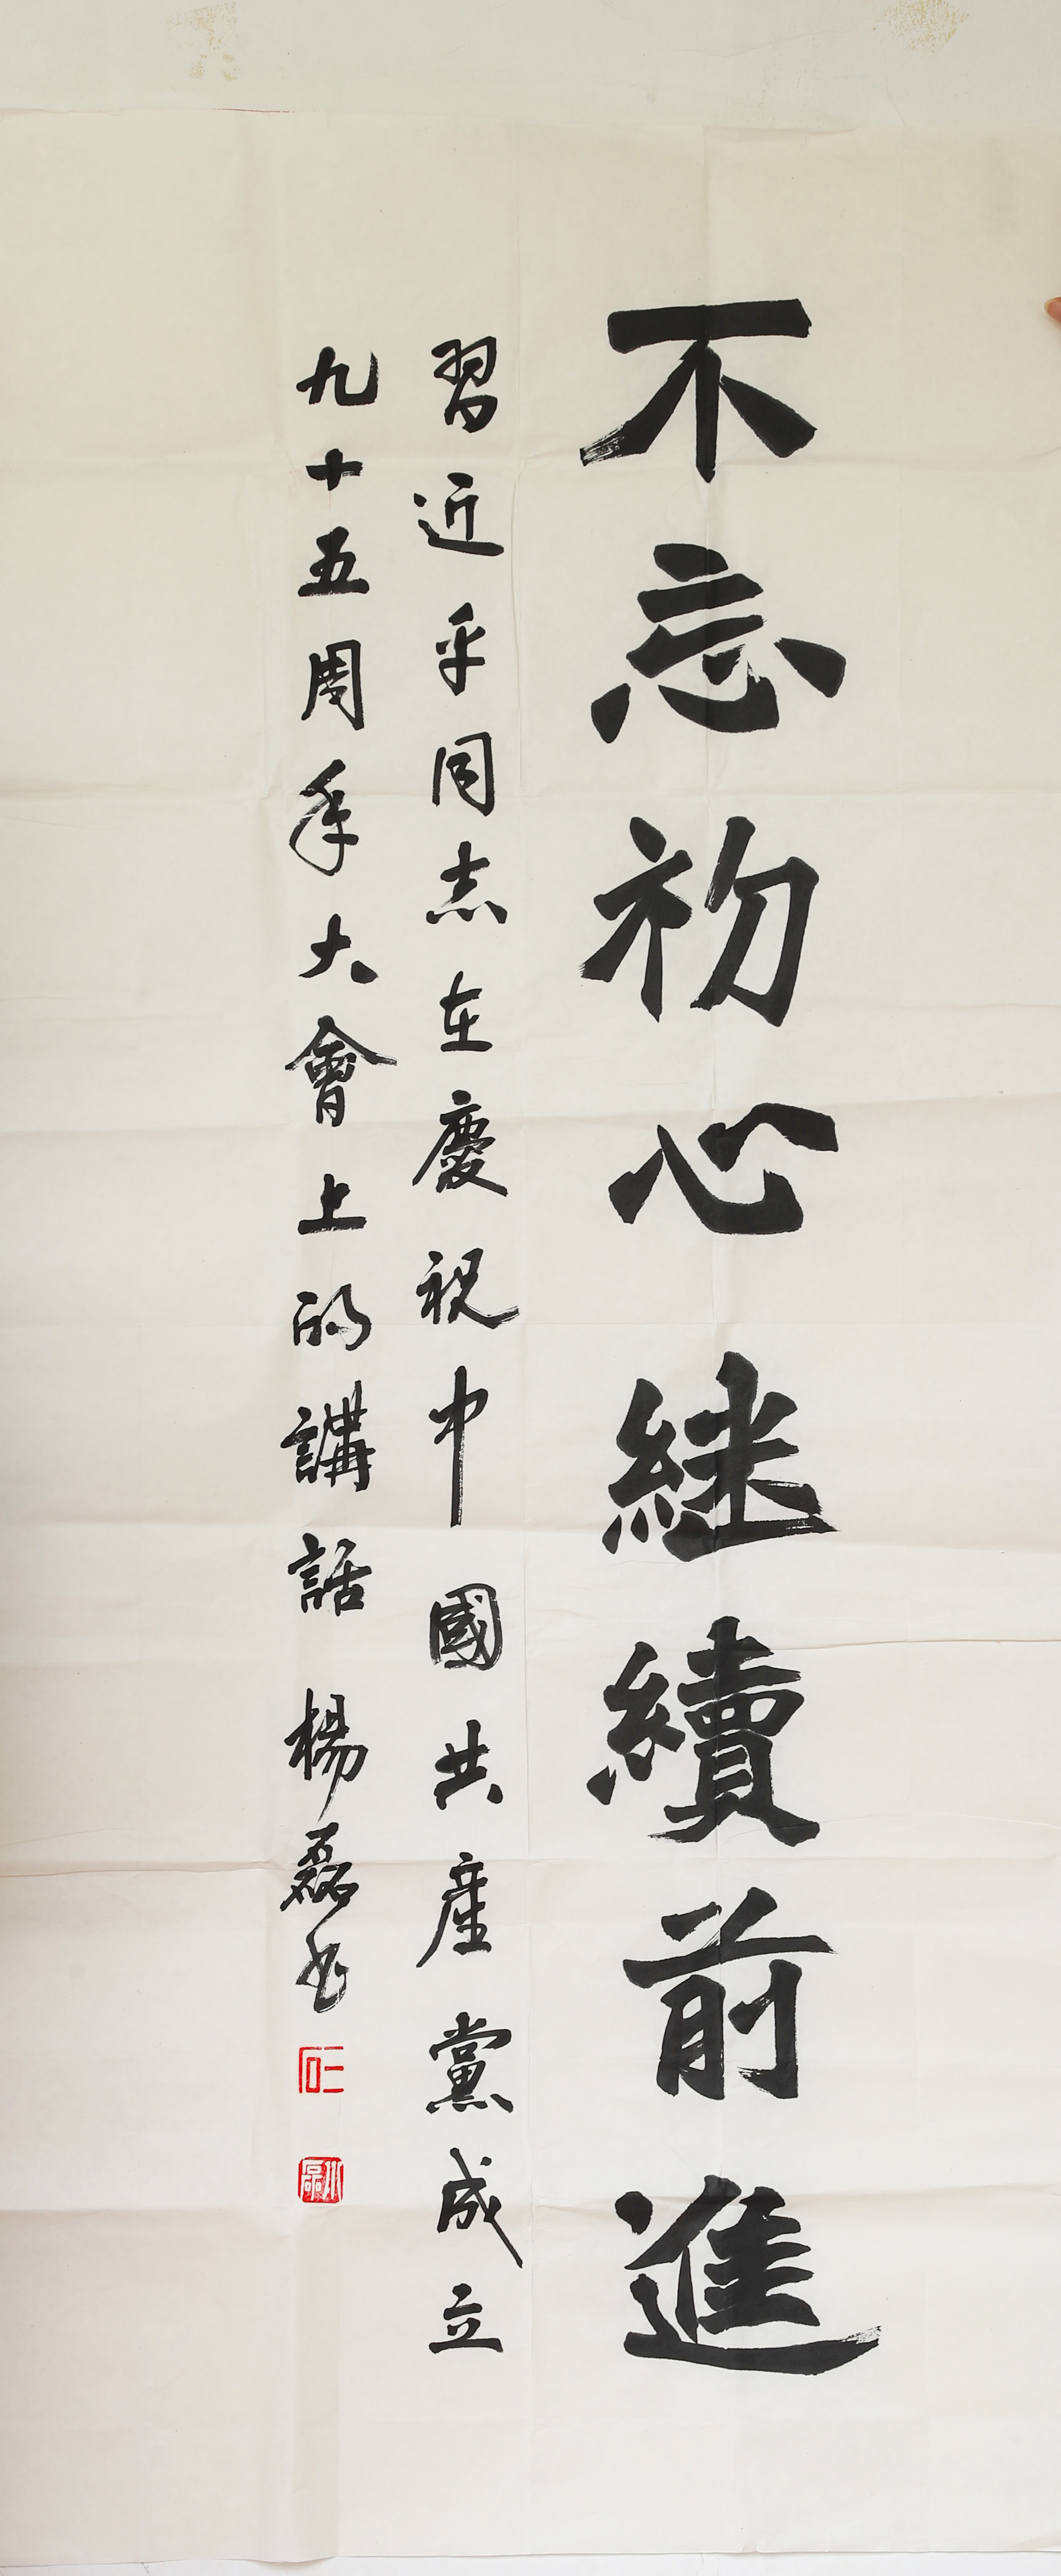 不忘初心継續前進
習近平同志在慶祝中國共産黨成立
九十五周年大會上的講話 楊磊书